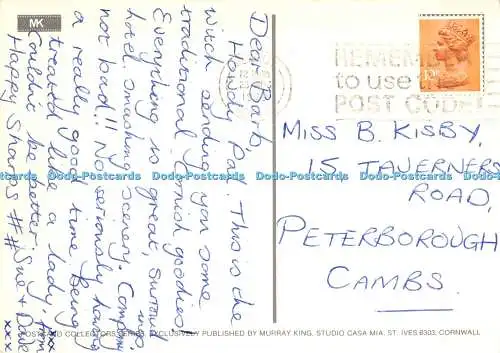 MK
Dear Barb,
Howdy Pal! This is the
witch sending you some
traditional Cornish goodies.
Everything is great, smooth
hotel, smashing scenery. Company
not bad!! No seriously having
a really good time. Being
treated like a lady,
Couldn't be better.
Happy Sharps ## Sue + Dave
xxx
REMEMBER
to use the
POST CODE
MISS B. KISBY,
15, TAVERNERS
ROAD,
PETERBOROUGH
CAMBS.
POSTCARD COLLECTORS SERIES EXCLUSIVELY PUBLISHED BY MURRAY KING, STUDIO CASA MIA, ST. IVES 6303, CORNWALL
Dodo-Postcards Dodo-Postcards Dodo-Postcards Dodo-Postcards Dodo-Postcards